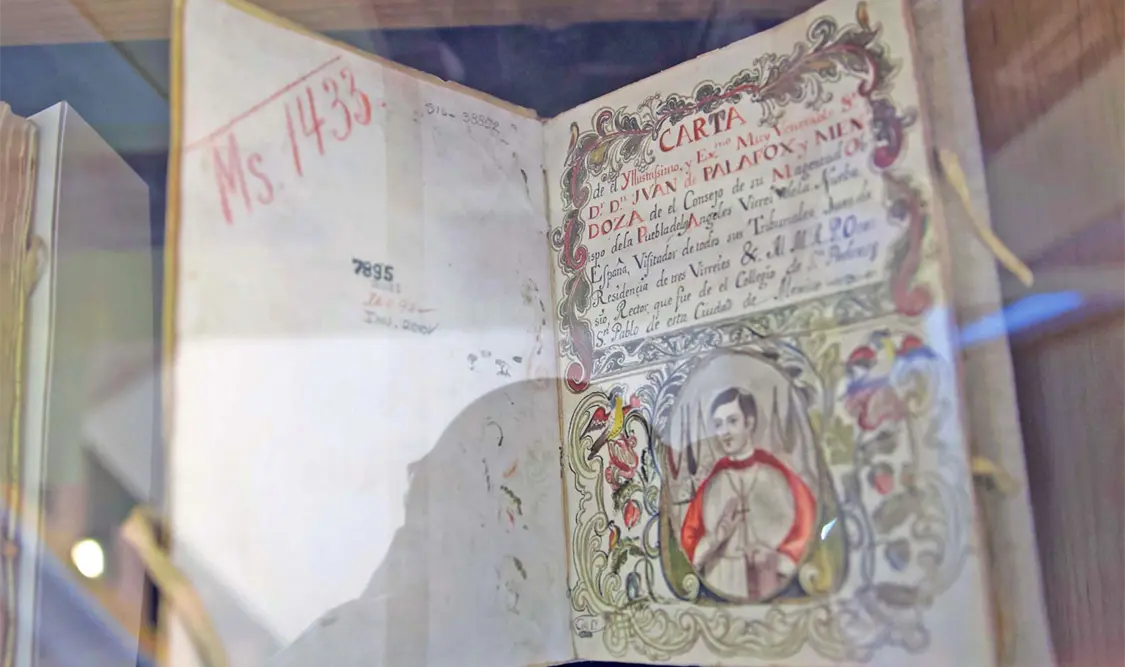 Ms. 1433
7895
CARTA
de el Yllustrissimo, y Ex.mo Muy Venerable S.r
D.r D.n JVAN de PALAFOX y MEN
DOZA de el Consejo de su Magestad Ob
ispo dela Puebla delos Angeles Virrei dela Nueba
España, Visitador de todos sus Tribunales Juez de
Residencia de tres Virreies &. Al M. R. P.
sio, Rector, que fue de el Collegio de S.n Pedro y
S.n Pablo de esta Ciudad de Mexico